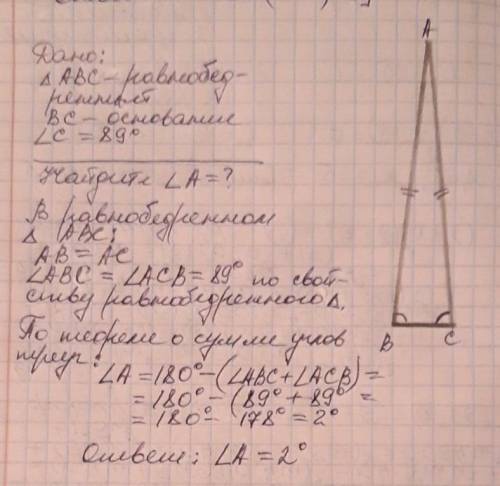 Дано:
△ ABC – равнобед-
ренный
BC – основание
∠C = 89°
Найдите ∠A = ?
В равнобедренном
△ ABC:
AB = AC
∠ABC = ∠ACB = 89° по свой-
ству равнобедренного △.
По теореме о сумме углов
треуг:
∠A = 180° – (∠ABC + ∠ACB) =
= 180° – (89° + 89° =
= 180° – 178° = 2°
Ответ: ∠A = 2°
A
B
C